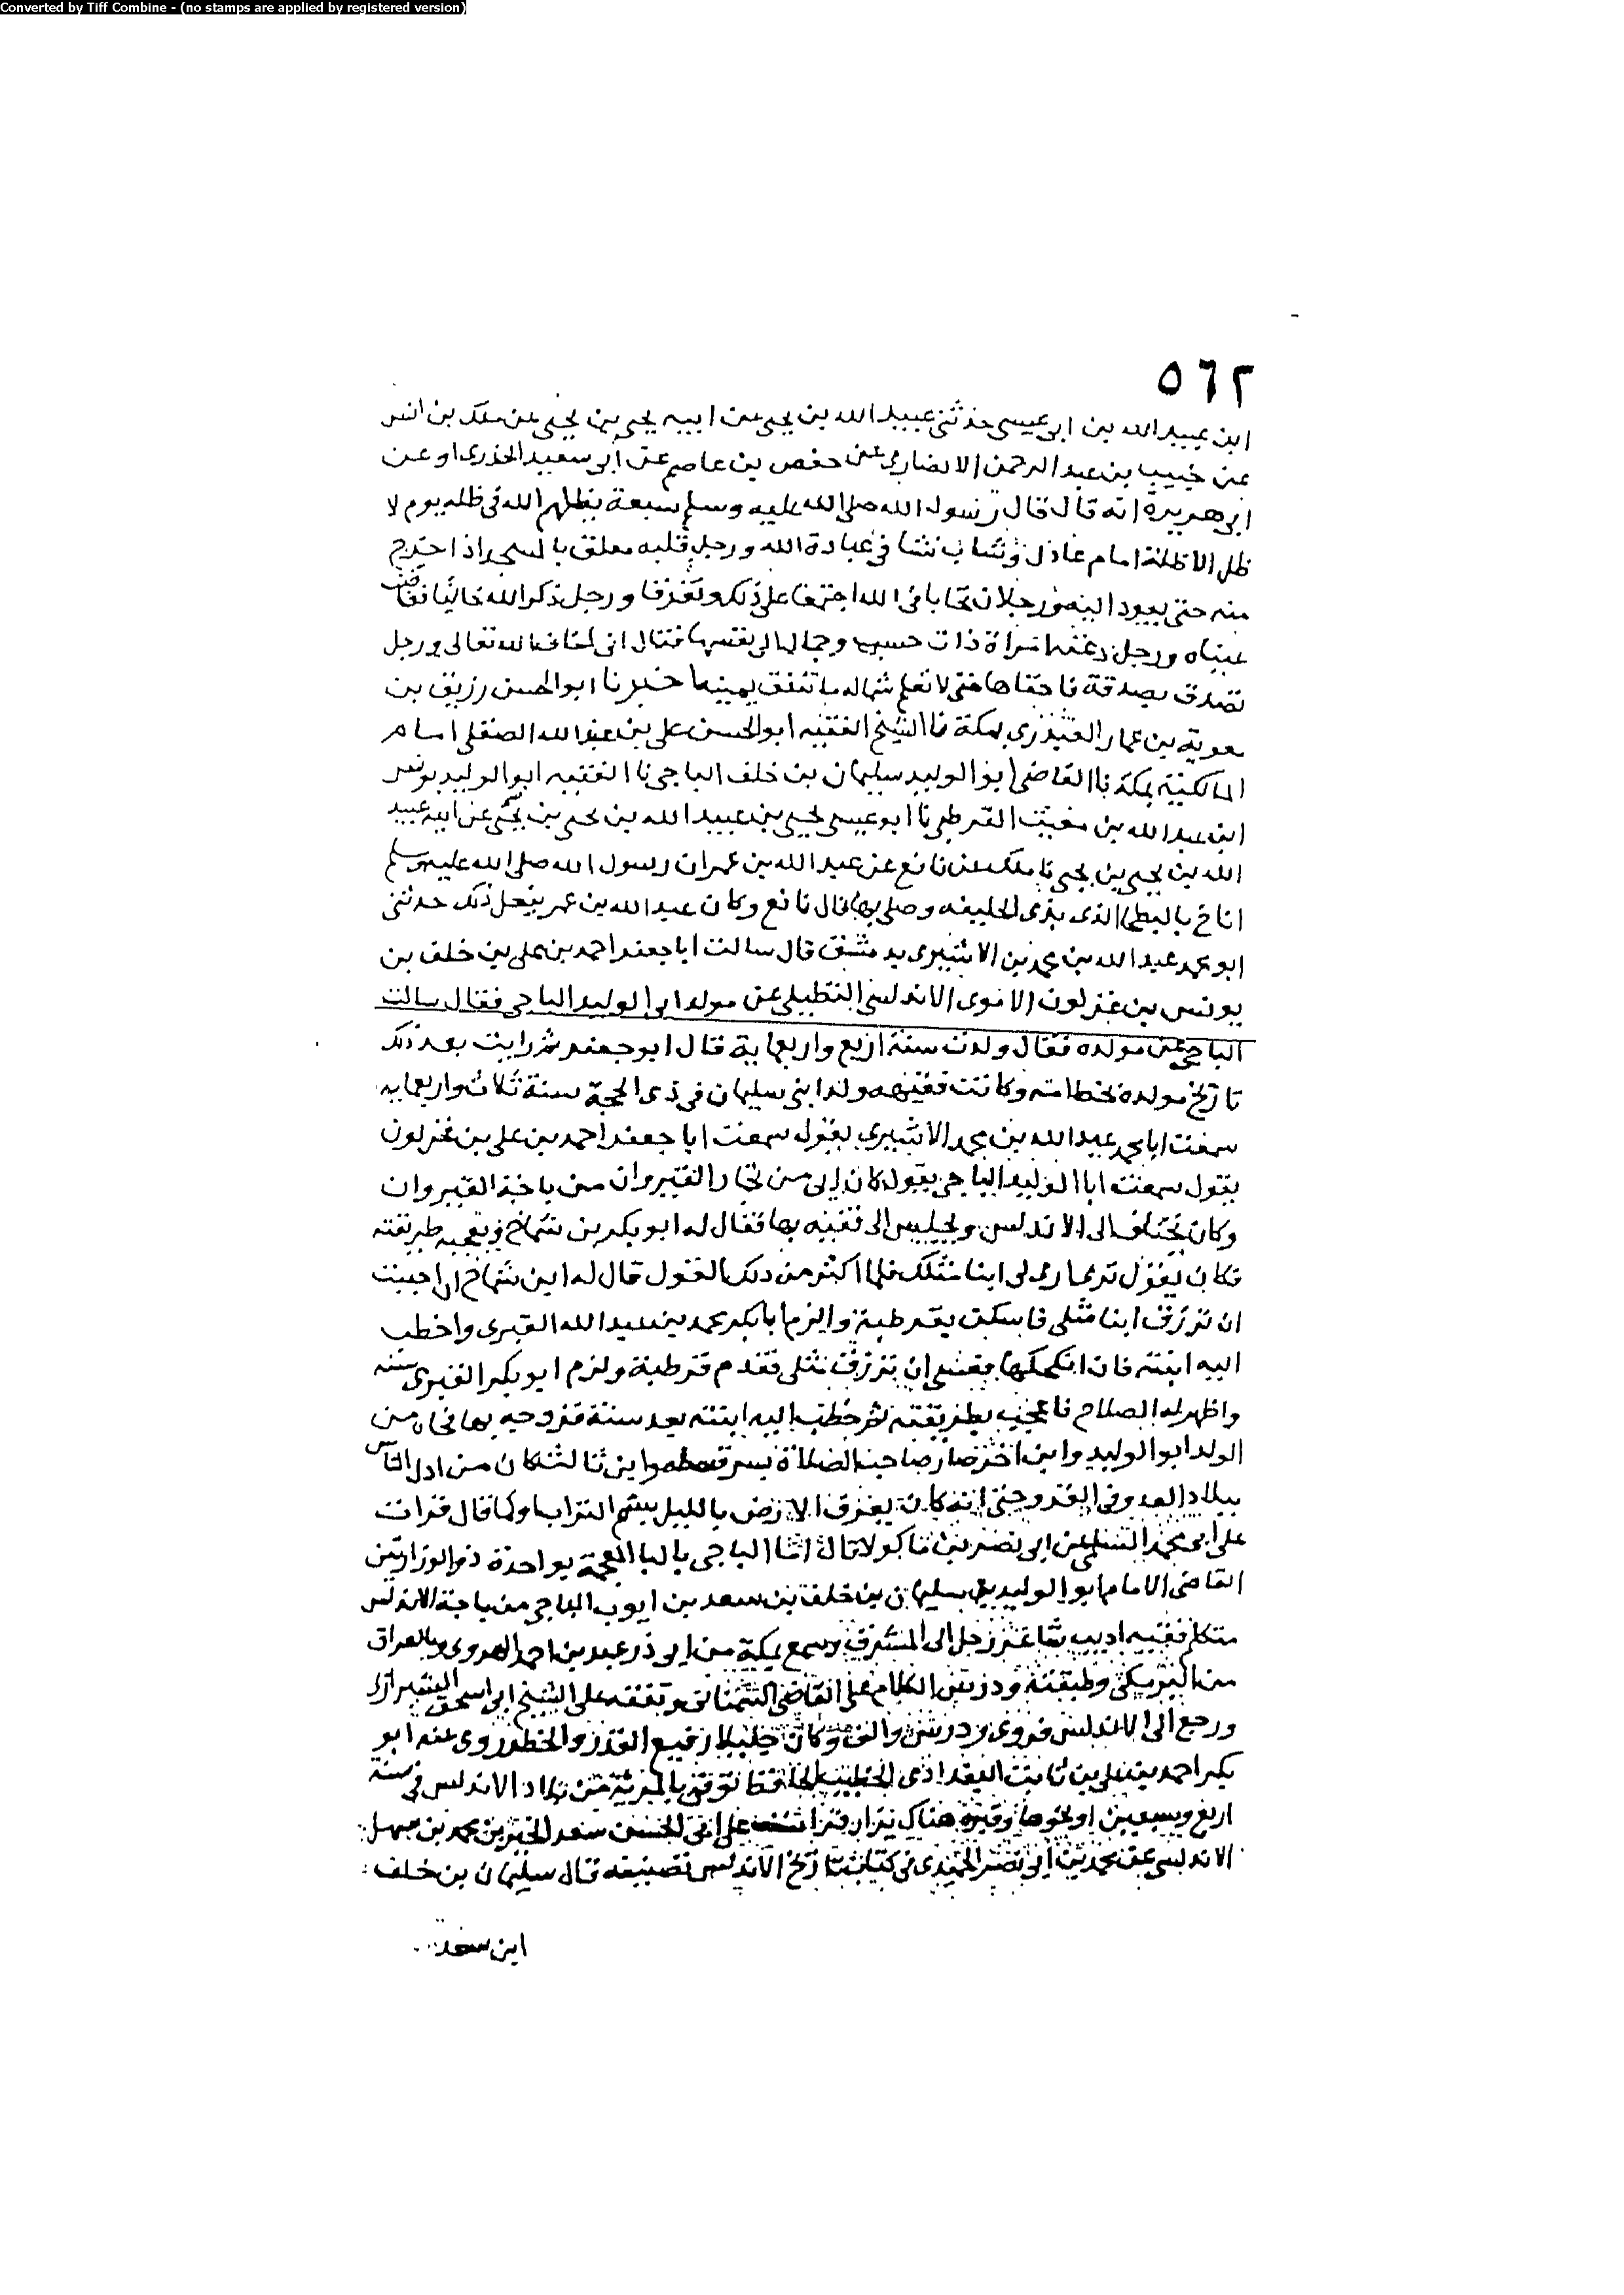 Converted by Tiff Combine - (no stamps are applied by registered version)
٥٦٢
ابن عبيد الله بن ابى عيسى حدثنى عبيد الله بن يحيى عن ابيه يحيى بن يحيى عن ملك بن انس
عن خبيب بن عبد الرحمن الانصارى عن حفص بن عاصم عن ابى سعيد الخذرى او عن
ابى هريرة انه قال قال رسول الله صلى الله عليه وسلم سبعة يظلهم الله فى ظله يوم لا
ظل الا ظله امام عادل وشاب نشا فى عبادة الله ورجل قلبه معلق بالمسجد اذا خرج
منه حتى يعود اليه ورجلان تحابا فى الله اجتمعا على ذلك وتفرقا ورجل ذكر الله خاليا ففاضت
عيناه ورجل دعته امراة ذات حسب وجمال الى نفسها فقال انى اخاف الله تعالى ورجل
تصدق بصدقة فاخفاها حتى لا تعلم شماله ما تنفق يمينه اخبرنا ابو الحسن رزيق بن
معوية بن عمار العبدرى بمكة نا الشيخ الفقيه ابو الحسن على بن عبد الله الصقلى امام
المالكية بمكة نا القاضى ابو الوليد سليمان بن خلف الباجى نا الفقيه ابو الوليد يونس
ابن عبد الله بن مغيث القرطبى نا ابو عيسى يحيى بن عبيد الله بن يحيى بن يحيى عن ابيه عبيد
الله بن يحيى بن يحيى نا ملك عن نافع عن عبد الله بن عمر ان رسول الله صلى الله عليه وسلم
اناخ بالبطحا الذى بذى الحليفه وصلى بها قال نافع وكان عبد الله بن عمر يفعل ذلك حدثنى
ابو محمد عبد الله بن محمد بن الاشيرى بدمشق قال سالت ابا جعفر احمد بن على بن خلف بن
يونس بن غزلون الاموى الاندلسى التطيلى عن مولد ابى الوليد الباجى فقال سالت
الباجى عن مولده فقال ولدت سنة اربع واربعماية قال ابو جعفر ثم رايت بعد ذلك
تاريخ مولده بخط امه وكانت فقيهه ولد ابنى سليمان فى ذى الحجة سنة ثلاث واربعمايه
سمعت ابا محمد عبد الله بن محمد الاشيرى يقول سمعت ابا جعفر احمد بن على بن غزلون
يقول سمعت ابا الوليد الباجى يقول كان ابى من تجار القيروان من باجة القيروان
وكان يختلف الى الاندلس ويجلس الى فقيه بها فقال له ابو بكر بن شماخ فتعجبه طريقته
فكان يقول ترى ارى لى ابنا مثلك فلما اكثر من ذلك القول قال له ابن شماخ ان احببت
ان ترزق ابنا مثلى فاسكن بقرطبة والزم ابا بكر محمد بن عبد الله القبرى واخطب
اليه ابنته فان انكحكها فعسى ان ترزق مثلى فقدم قرطبة ولزم ابو بكر القبرى سنه
واظهر له الصلاح فاعجب بطريقته ثم خطب اليه ابنته بعد سنة فزوجه بها فجا من
الولد ابو الوليد وابن اخر صار صاحب الصلاة بسرقسطه وابن ثالث كان من ادل الناس
ببلاد العدو فى الغزو حتى انه كان يعرف الارض بالليل بشم التراب او كما قال قرات
على ابى محمد السلمى عن ابى نصر بن ماكولا قال اما الباجى بالبا المعجمة بواحدة ذو الوزارتين
القاضى الامام ابو الوليد سليمان بن خلف بن سعد بن ايوب الباجى من باجة الاندلس
متكلم فقيه اديب شاعر رحل الى المشرق وسمع بمكة من ابى ذر عبد بن احمد الهروى وبالعراق
من البرمكى وطبقته ودرس الكلام على القاضى السمنانى وتفقه على الشيخ ابى اسحق الشيرازى
ورجع الى الاندلس فروى ودرس والف وكان جليلا رفيع القدر والخطر روى عنه ابو
بكر احمد بن على بن ثابت البغداذى الخطيب الحافظ توفى بالمرية من بلاد الاندلس فى سنة
اربع وسبعين او نحوها وقبره هناك يزار قرات على ابى الحسن سعد الخير بن محمد بن سهل
الاندلسى عن محمد بن ابى نصر الحميدى فى كتاب تاريخ الاندلس تصنيفه قال سليمان بن خلف
ابن سعد